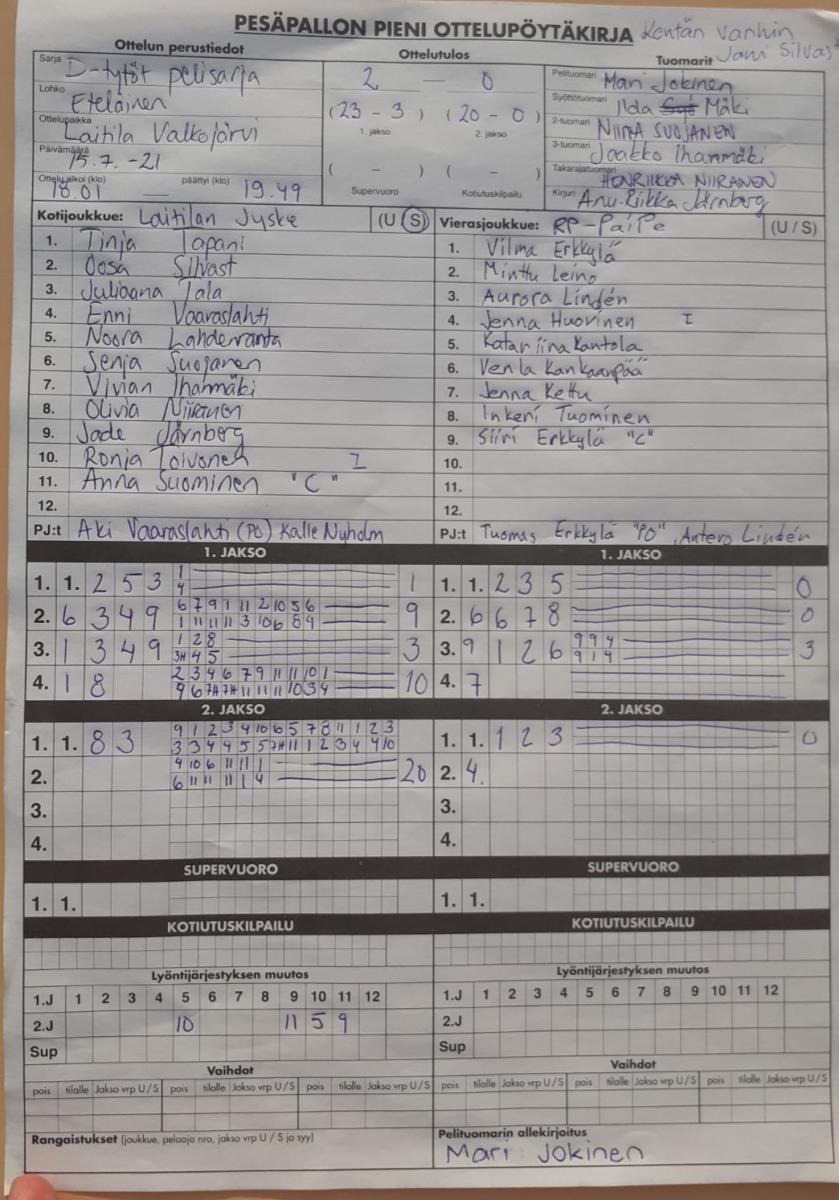 PESÄPALLON PIENI OTTELUPÖYTÄKIRJA Kentän vanhin
Jani Silvast
Ottelun perustiedot
Ottelutulos
Tuomarit
Sarja D-tytöt pelisarja
Lohko Eteläinen
Ottelupaikka Laitila Valkojärvi
Päivämäärä 15.7.-21
Ottelu alkoi (klo) 18.01 — päättyi (klo) 19.49
2 — 0
(23 - 3) (20 - 0)
1. jakso 2. jakso
( - ) ( - )
Supervuoro Kotiutuskilpailu
Pelituomari Mari Jokinen
Syöttötuomari Ilda Mäki
2-tuomari NIINA SUOJANEN
3-tuomari Jaakko Ihanmäki
Takarajatuomari HENRIIKKA NIIRANEN
Kirjuri Anu-Riikka Järnberg
Kotijoukkue: Laitilan Jyske (U/S)
1. Tinja Tapani
2. Oosa Silvast
3. Juliaana Tala
4. Enni Vaaraslahti
5. Noora Lahdenranta
6. Senja Suojanen
7. Vivian Ihanmäki
8. Olivia Niiranen
9. Jade Järnberg
10. Ronja Toivonen I
11. Anna Suominen "C"
12.
PJ:t Aki Vaaraslahti (PO) Kalle Nyholm
Vierasjoukkue: RP-PaiPe (U/S)
1. Vilma Erkkylä
2. Minttu Leino
3. Aurora Lindén
4. Jenna Huovinen I
5. Katariina Kantola
6. Venla Kankaanpää
7. Jenna Kettu
8. Inkeri Tuominen
9. Siiri Erkkylä "C"
10.
11.
12.
PJ:t Tuomas Erkkylä "PO", Antero Lindén
1. JAKSO
1. 1. 2 5 3 1 1
4
2. 6 3 4 9 6 7 9 1 11 2 10 5 6 9
1 11 11 11 3 10 6 8 9
3. 1 3 4 9 1 2 8 3
3H 4 5
4. 1 8 2 3 4 6 7 9 11 11 10 1 10
9 6 7H 7H 11 11 11 10 3 4
2. JAKSO
1. 1. 8 3 9 1 2 3 4 10 6 5 7 8 11 1 2 3
3 3 4 4 5 5 7H 11 1 2 3 4 4 10
2. 4 10 6 11 11 1 20
6 11 11 11 1 4
3.
4.
SUPERVUORO
1. 1.
KOTIUTUSKILPAILU
1. JAKSO
1. 1. 2 3 5 0
2. 6 6 7 8 0
3. 9 1 2 6 9 9 4 3
9 1 4
4. 7
2. JAKSO
1. 1. 1 2 3 0
2. 4.
3.
4.
SUPERVUORO
1. 1.
KOTIUTUSKILPAILU
Lyöntijärjestyksen muutos
1.J 1 2 3 4 5 6 7 8 9 10 11 12
2.J 10 11 5 9
Sup
Vaihdot
pois tilalle Jakso vrp U/S pois tilalle Jakso vrp U/S pois tilalle Jakso vrp U/S
Rangaistukset (joukkue, pelaaja nro, jakso vrp U / S ja syy)
Lyöntijärjestyksen muutos
1.J 1 2 3 4 5 6 7 8 9 10 11 12
2.J
Sup
Vaihdot
pois tilalle Jakso vrp U/S pois tilalle Jakso vrp U/S pois tilalle Jakso vrp U/S
Pelituomarin allekirjoitus
Mari Jokinen